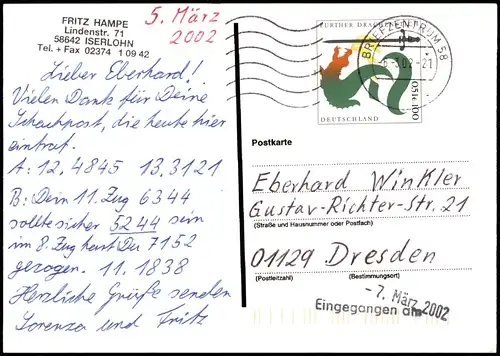 FRITZ HAMPE
Lindenstr. 71
58642 ISERLOHN
Tel. + Fax 02374 1 09 42
5. März
2002
Lieber Eberhard!
Vielen Dank für Deine
Schachpost, die heute hier
eintraf.
A: 12. 4845 13. 3121
B: Dein 11. Zug 6344
sollte sicher 5244 sein
im 8. Zug hast Du 7152
gezogen. 11. 1838
Herzliche Grüße senden
Lorenza und Fritz
FURTHER DRACHEN
DEUTSCHLAND
0,51€ 100
BRIEFZENTRUM 58
3.02-21
Postkarte
Eberhard Winkler
Gustav-Richter-Str. 21
(Straße und Hausnummer oder Postfach)
01129 Dresden
(Postleitzahl) (Bestimmungsort)
-7. März 2002
Eingegangen am